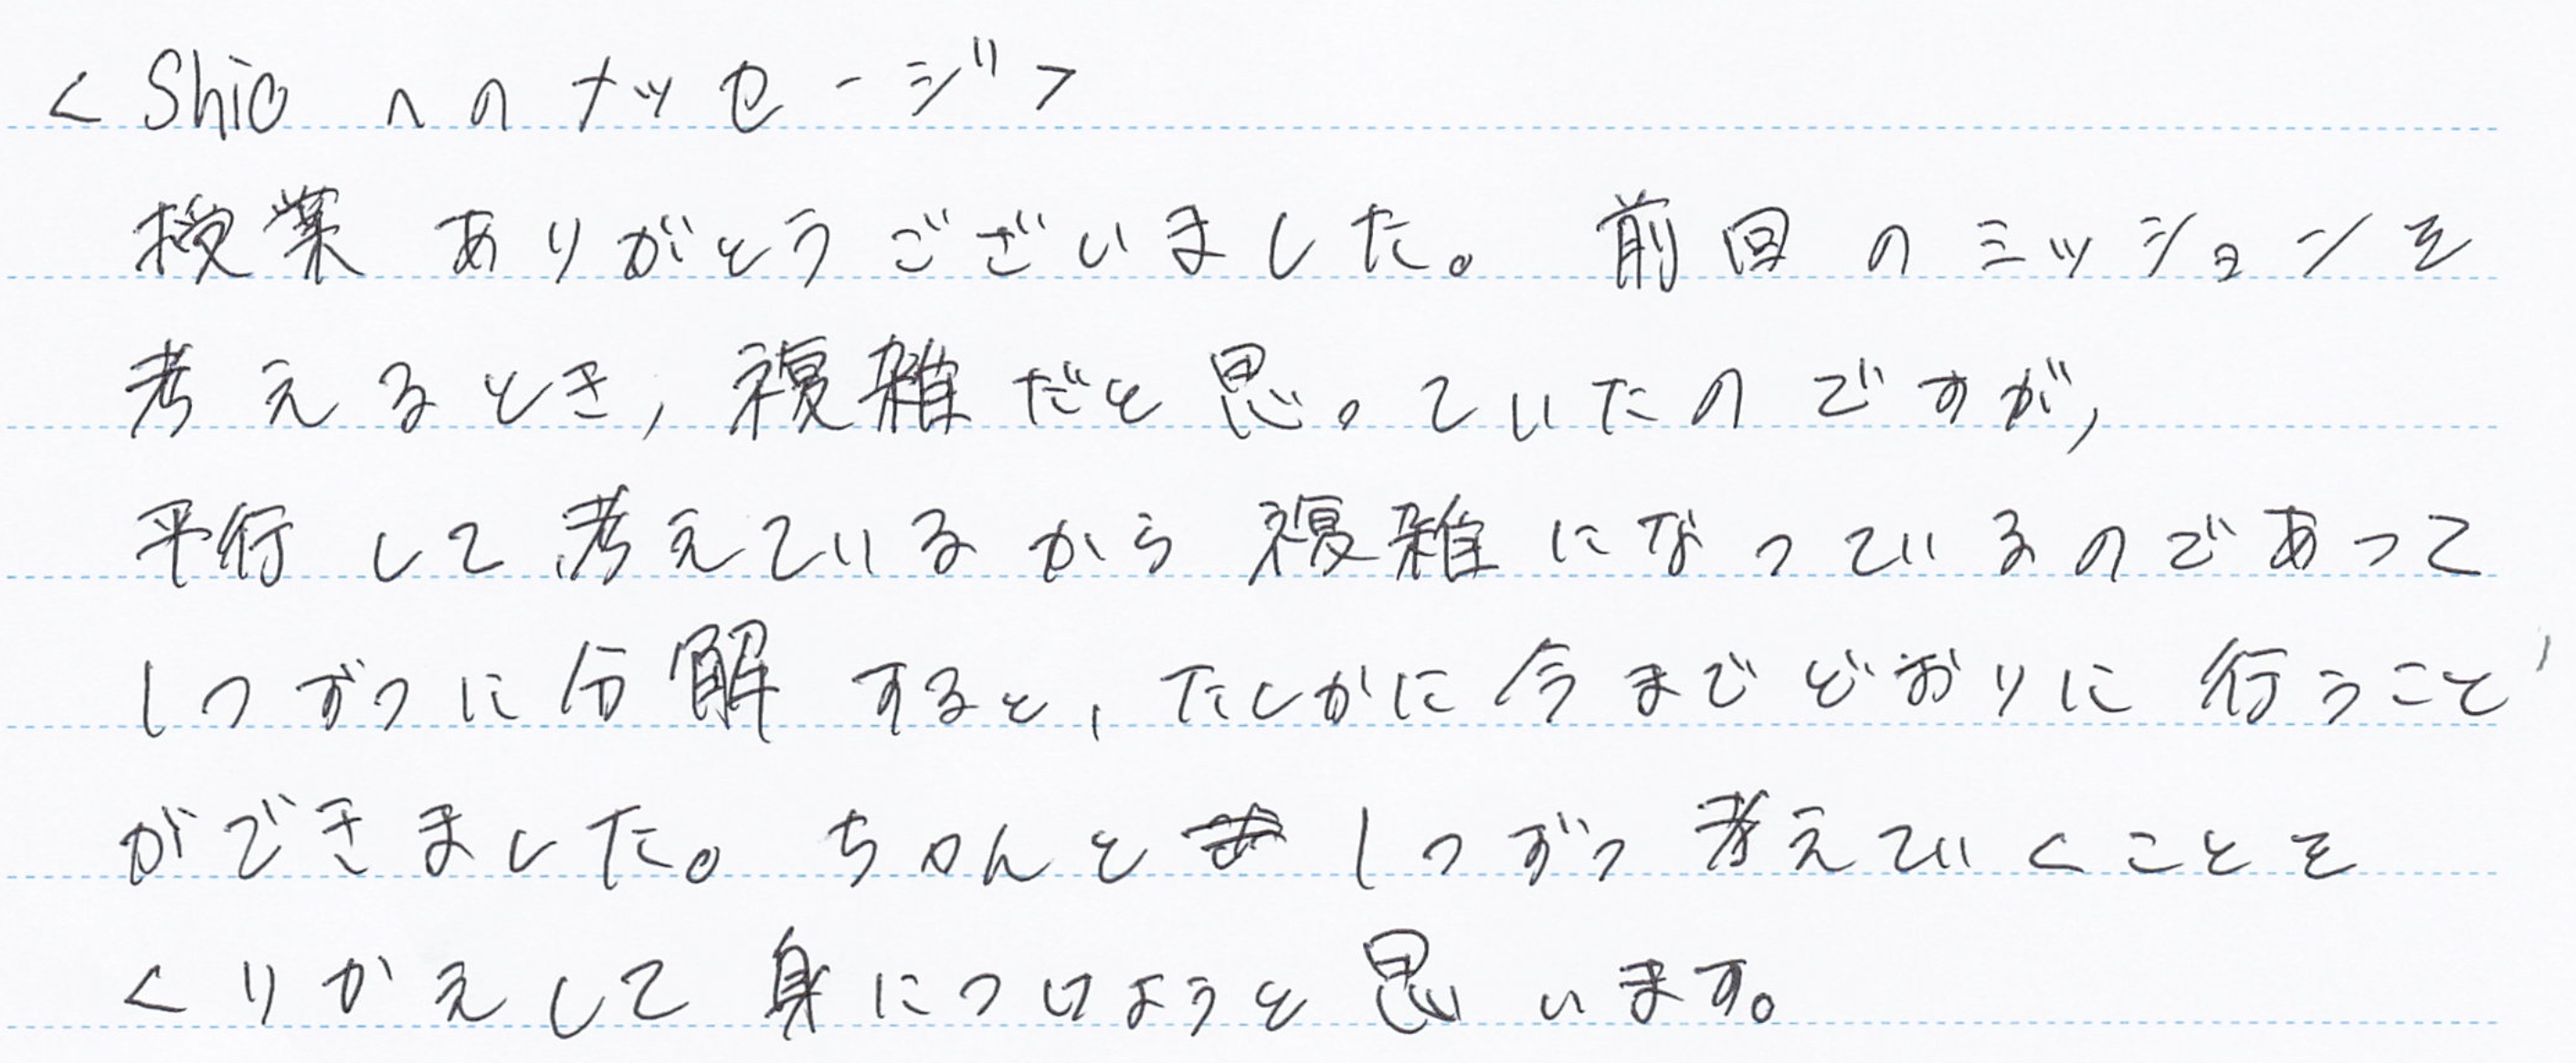 <Shioへのメッセージ>
授業ありがとうございました。前回のミッションを
考えるとき,複雑だと思っていたのですが,
平行して考えているから複雑になっているのであって
1つずつに分解すると,たしかに今までどおりに行うこと
ができました。ちゃんと1つずつ考えていくことを
くりかえして身につけようと思います。